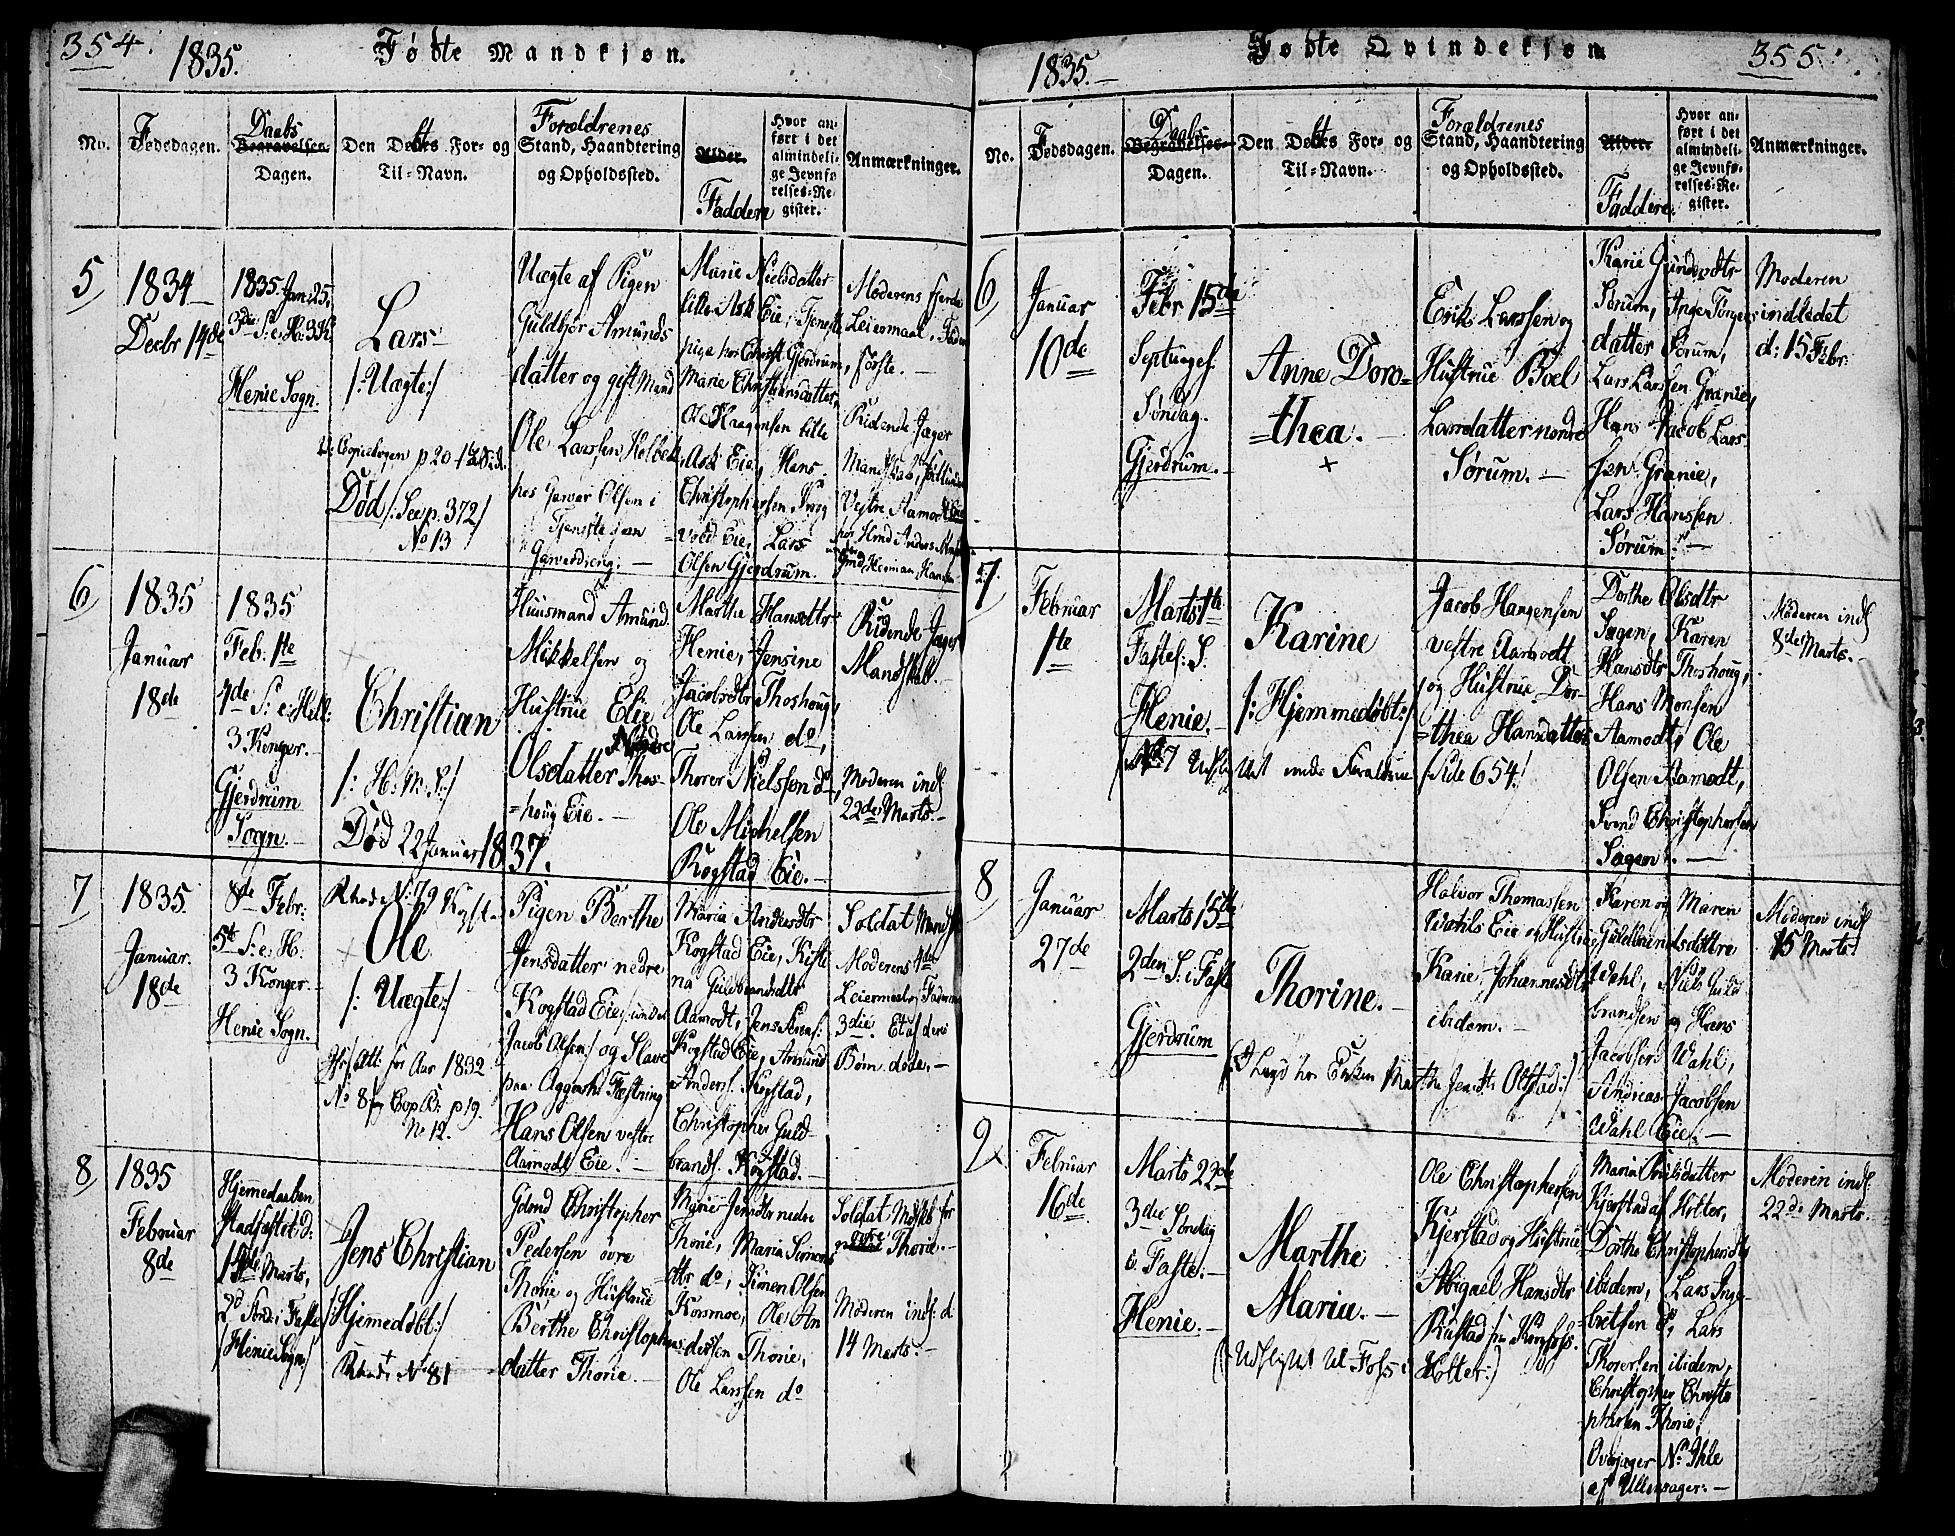 354.
1835.
Fødte Mandkjøn.
No.
Fødsdagen.
Daabs
Begravelses-
Dagen.
Den Døbtes For- og
Til-Navn.
Forældrenes
Stand, Haandtering
og Opholdssted.
Alder.
Faddere
Hvor an-
ført i det
almindeli-
ge Jevnfø
relses-Re-
gister.
Anmærkninger.
5
1834
Decbr 14de
1835. Jan: 25,
3die S: e: H: 3K:
Henie Sogn.
Lars
/: Uægte:/
Død /: See p. 372/
No 13
Uægte af Pigen
Guldbjør Amunds
datter og gift Mand
Ole Larssen Holbek
hos Garver Olsen i
Tjeneste som
Marie Nielsdatter
lille Ask Eie, Tjeneste
pige hos Christ. Gjerdrum,
Marie Christiansdatter
Ole Haagensen lille
Ask Eie, Hans
Christophersen
vold Eie, Lars
Olsen Gjerdrum.
Moderens fjerde
Leiermaal, Fade
første. –
Ridende Jæger
Vestre Aamodt Eie
6
1835
Januar
18de
1835
Feb: 1te
4de S: e: Hell:
3 Konger. –
Gjerdrum
Sogn. –
Christian
/: H: M: S:/
Død 22 Januar 1837.
Huusmand Amund
Mikkelsen og
Hustrue Elie
Olsdatter Nedre Thos-
=houg Eie. –
Marthe Hansdtr
Henie, Jensine
Jacobsdtr Thoshoug,
Ole Larssen do,
Thorer Nielssen do,
Ole Michelsen
Kogstad Eie. –
Ridende Jæger
Mandskab.
Moderen indl
22de Marts. –
7
1835.
Januar
18de
8de Febr:
5te S: e: H:
3 Konger. –
Henie Sogn.
Ole
/: Uægte:/
for Aar 1832
No 8 Cop B: p 19.
No 12.
Pigen Berthe
Jensdatter nedre
Kogstad Eie
Jacob Olsen/ og Slave
paa Aggersh: Fæstning
Hans Olsen vestre
Aamodt Eie. –
Maria Andersdtr
Kogstad Eie, Kisti
na Guldbrandsdtr
Aamodt, Jens
Kogstad Eie, Amund
Anders. Kogstad,
Christopher Guld-
brands. Kogstad. –
Soldat Mands
Moderens 4de
Leiermaal, Faderens
3die. Et af dere
Børn døde. –
8
1835
Februar
8de
Hjemedaaben
stadfæstet D:
15de Marts,
2d Sønd: i Faste
/Henie Sogn/
Jens Christian
/: Hjemedøbt:/
No 81
Gdmd Christopher
Pedersen øvre
Thorie og Hustrue
Berthe Christophers-
datter Thorie. –
Marie Jensdtr nedre
Thorie, Maria Simens
dtr do, Simen Olsen
Korsmoe, Ole An
derssen Thorie,
Ole Larssen do
Soldat Mdskb for
Thorie. –
Moderen indl: d:
14 Marts. –
1835. –
Fødte Qvindekjøn
355.
No.
Fødsdagen.
Daabs
Begravelses-
Dagen.
Den Døbtes For- og
Til-Navn.
Forældrenes
Stand, Haandtering
og Opholdssted.
Alder.
Faddere.
Hvor an-
ført i det
almindeli-
ge Jevnfø-
relses-Re-
gister.
Anmærkninger.
6
Januar
10de
Febr 15de
Septuages.
Søndag.
Gjerdrum. –
Anne Doro=
=thea. –
Erik Larssen og
Hustrue Boel
Larsdatter nordre
Sørum. –
Karie Gundersdtr
Sørum, Inger Torgers
datter Sørum,
Lars Larssen Granie,
Hans Jacob Lars
sen Granie,
Lars Hanssen
Sørum. –
Moderen
indledet
d: 15 Febr:
7.
Februar
1te
Marts 1te
Fastes: S.
Henie. –
Karine
/: Hjemmedøbt:/
Jacob Haagensen
vestre Aamodt
og Hustrue Dor-
=thea Hansdatter
/side 654:/
Dorthe Olsdtr
Sagen, Karen
Hansdtr Thoshoug,
Hans Monsen
Aamodt, Ole
Olsen Aamodt,
Svend Christophersen
Sagen. –
Moderen indl
8de Marts. –
8
Januar
27de
Marts 15de
2den S: i Faste
Gjerdrum
Thorine. –
Halvor Thomassen
Wahls Eie og Hustrue
Karie Johannesdtr
ibidem. –
Karen og Maren
Guldbrandsdøttre
Wahl, Niels Guld
brandsen og Hans
Jacobsen Wahl,
Andreas Jacobsen
Wahl Eie. –
Moderen indl
15 Marts.
9
Februar
16de
Marts 22de
3die Søndag
i Faste. –
Henie. –
Marthe
Maria. –
Ole Christophersen
Kjerstad og Hustrue
Abigael Hansdtr
Holter:)
Kjerstad af Holter,
Dorthe Christophersdtr
ibidem, Lars Inge-
bretsen do, Lars
Thorersen ibidem,
Christopher Christo
phersen Thorie,
Overjæger N: Ihle
af Ullensager. –
Moderen indl.
22de Marts.